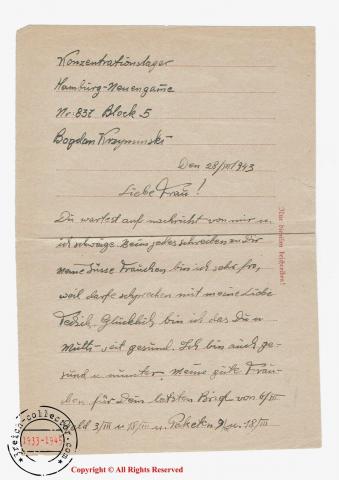 Konzentrationslager
Hamburg-Neuengame
Nr: 837 Block 5
Bogdan Krzyminski
Den 28/III 1943
Liebe Frau!
Du wartest auf nachricht von mir u.
ich schweige. Beim jedes schreiben an Dir
meine süsse Frauchen bin ich sehr fro,
weil darfe schprechen mit meine Liebe
Glücklich bin ich das Du u
Mutti seit gesund. Ich bin auch ge-
sund u munter, meine gute Frau-
chen für Dein letzten Brief von 6/III
3/III u 15/III u. Paketen 9/ u. 18/III
Nur Zeilen beschreiben!
reich-collector.com
1933-1945
Copyright © All Rights Reserved